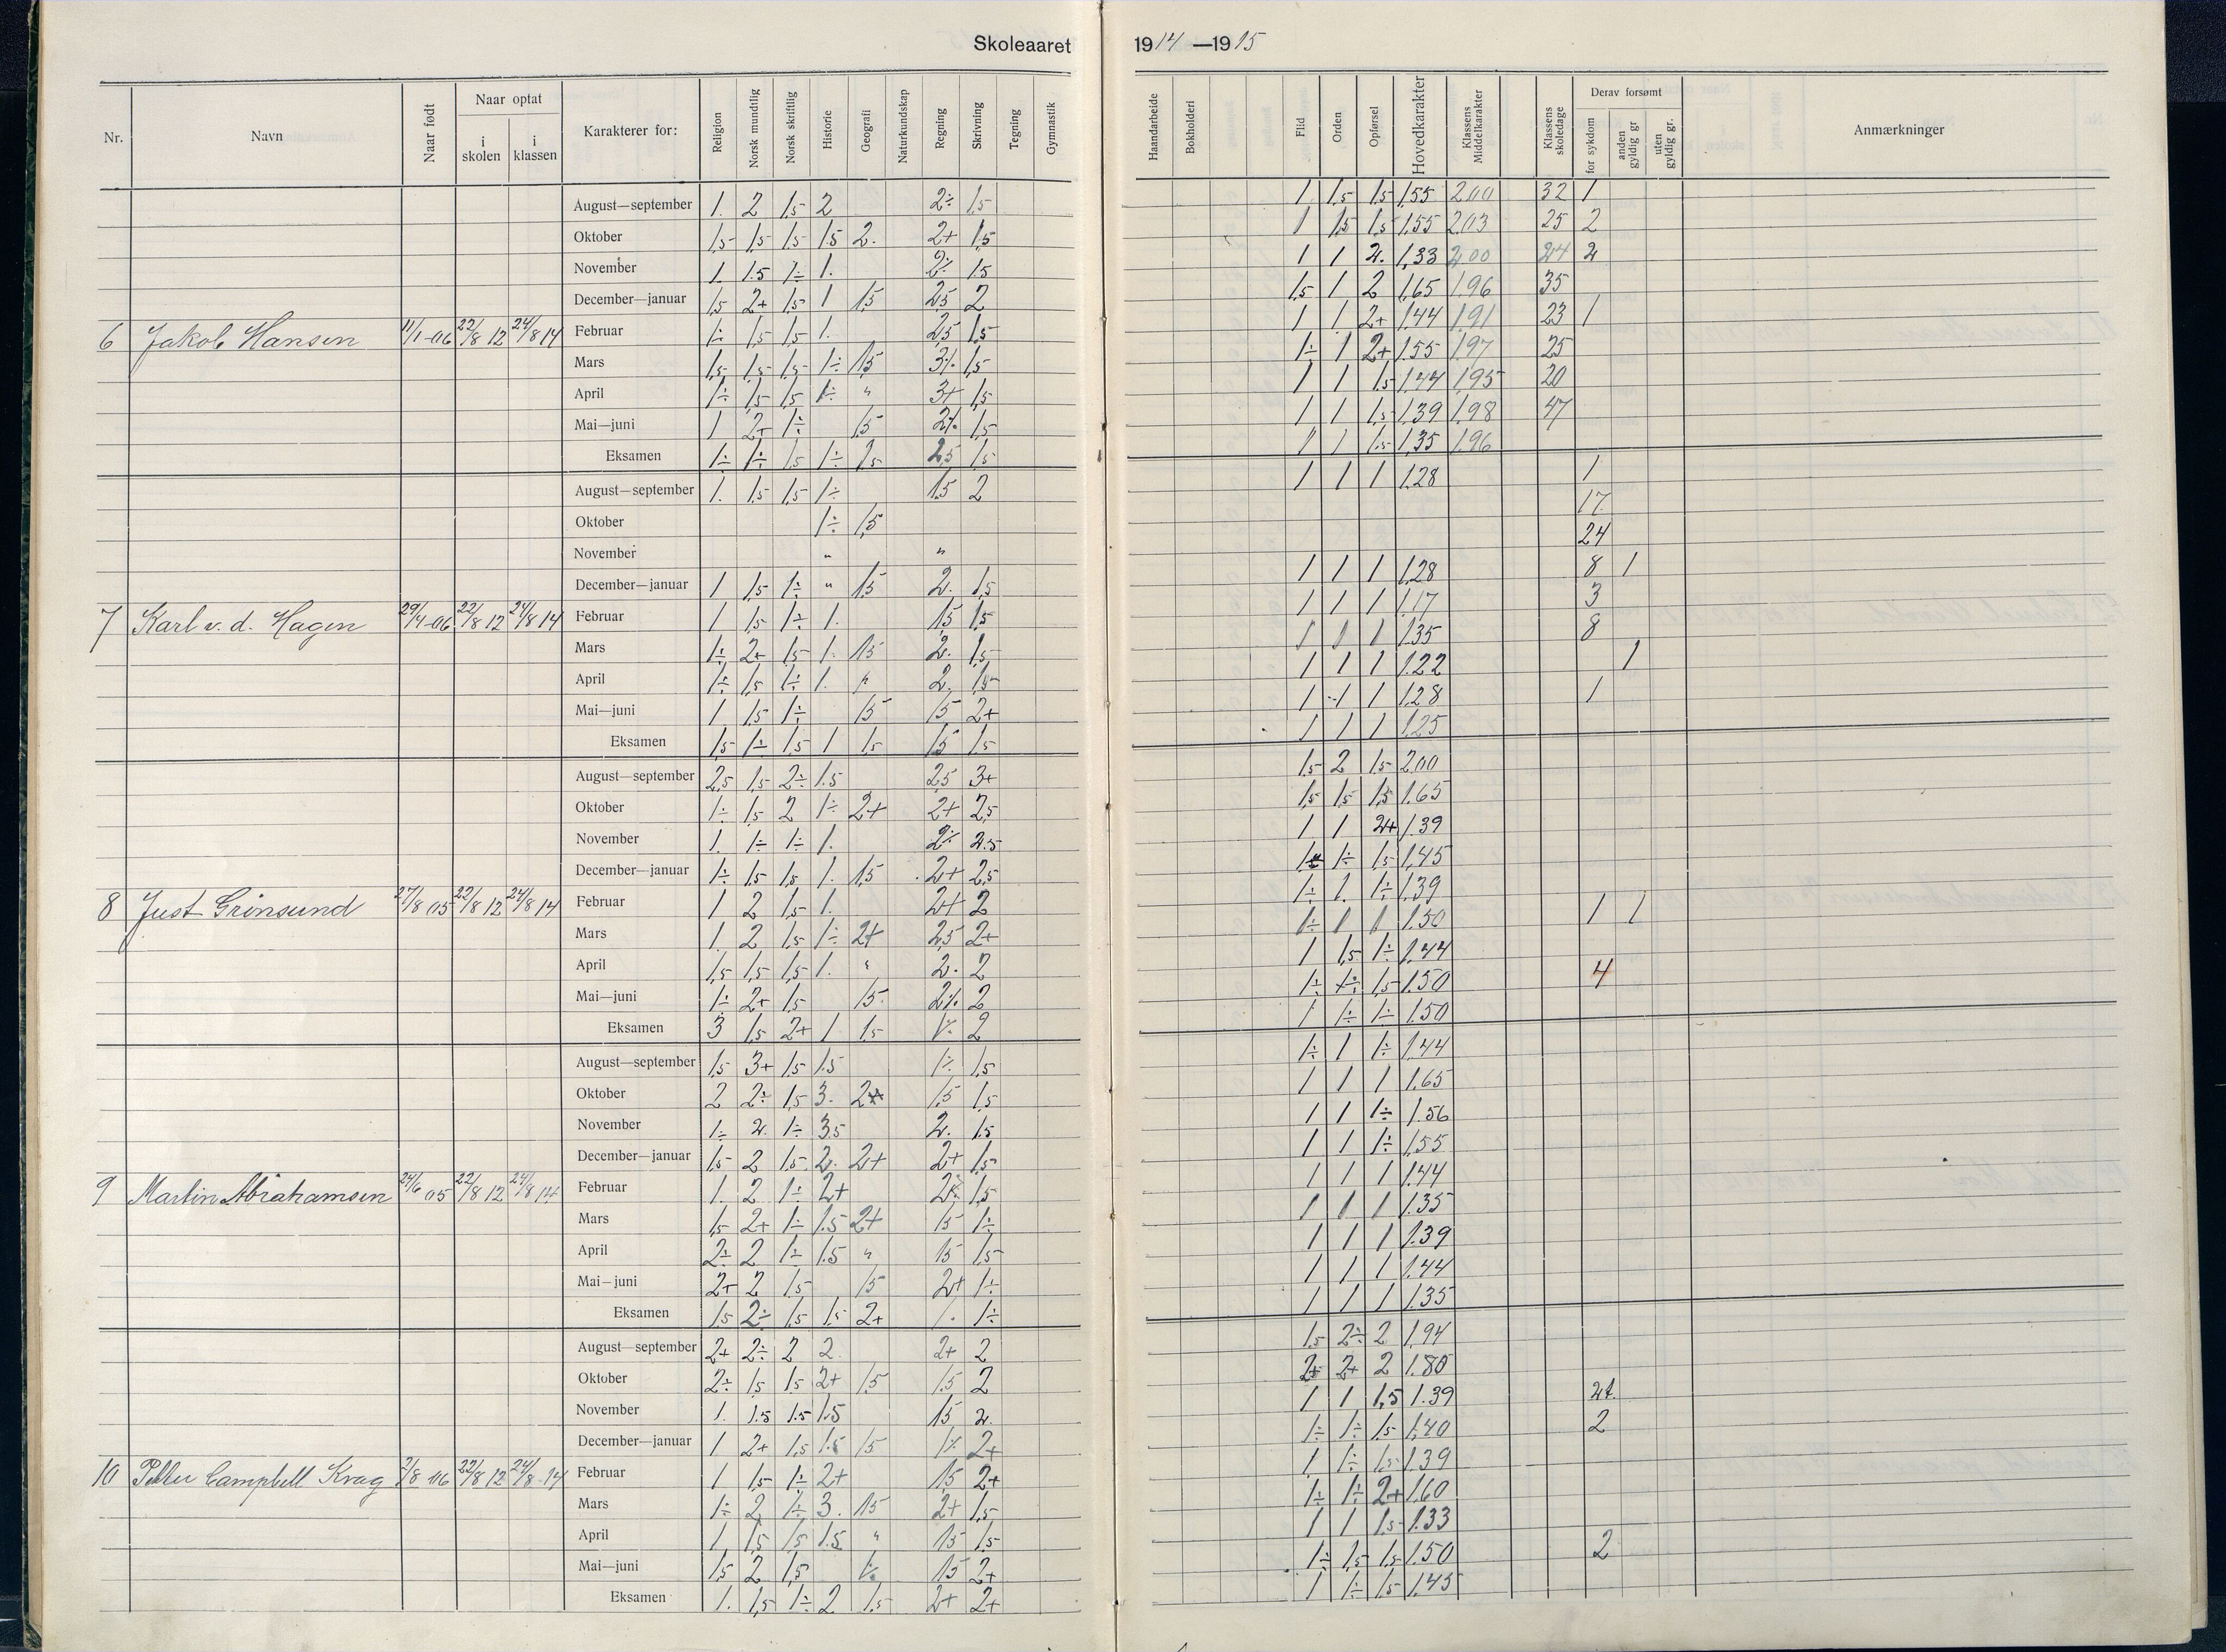 Skoleaaret 1914—1915
Nr. Navn Naar født Naar optat i skolen i klassen Karakterer for: Religion Norsk mundtlig Norsk skriftlig Historie Geografi Naturkundskap Regning Skrivning Tegning Gymnastik Haandarbeide Bokholderi Flid Orden Opførsel Hovedkarakter Klassens Middelkarakter Klassens skoledage Derav forsømt for sykdom anden gyldig gr uten gyldig gr. Anmærkninger
August—september 1. 2 1,5 2 2÷ 1,5 1 1,5 1,5 1,55 2,00 32 1
Oktober 1,5 1,5 1,5 1.5 2. 2+ 1,5 1 1,5 1,5 1,55 2,03 25 2
November 1 1.5 1÷ 1. 2÷ 1.5 1 1 2. 1,33 2,00 24 2
December—januar 1,5 2+ 1,5 1 1,5 2,5 2 1,5 1 2 1,65 1,96 35
6 Jakob Hansen 11/1-06 22/8 12 24/8 14 Februar 1÷ 1,5 1,5 1. 2,5 1,5 1 1 2+ 1,44 1,91 23 1
Mars 1,5 1,5 1,5 1÷ 1,5 3÷ 1,5 1÷ 1 2+ 1.55 1,97 25
April 1÷ 1,5 1,5 1÷ " 3+ 1,5 1 1 1,5 1,44 1,95 20
Mai—juni 1 2+ 1÷ 1,5 2÷ 1,5 1 1 1,5 1,39 1,98 47
Eksamen 1÷ 1÷ 1,5 1÷ 1,5 2,5 1,5 1 1 1.5 1,35 1,96
August—september 1. 1,5 1,5 1÷ 1.5 2 1 1 1 1,28 1
Oktober 1÷ 1,5 17.
November " " 24
December—januar 1 1,5 1÷ " 1,5 2. 1,5 1 1 1 1,28 8 1
7 Karl v. d. Hagen 29/4-06 22/8 12 24/8 14 Februar 1 1,5 1÷ 1. 1,5 1,5 1 1 1 1,17 3
Mars 1÷ 2+ 1,5 1. 1,5 2. 1,5 1 1 1 1.35 8
April 1÷ 1,5 1÷ 1. " 2. 1,5 1 1 1 1.22 1
Mai—juni 1 1,5 1÷ 1,5 1,5 2+ 1 1 1 1,28 1
Eksamen 1,5 1÷ 1,5 1 1,5 1,5 1,5 1 1 1 1,25
August—september 2,5 1,5 2÷ 1.5 2,5 3+ 1,5 2 1,5 2,00
Oktober 1÷ 1,5 2 1÷ 2+ 2+ 2,5 1,5 1,5 1,5 1.65
November 1. 1÷ 1÷ 1. 2÷ 2.5 1 1 2+ 1.39
December—januar 1÷ 1,5 1,5 1. 1,5 2+ 2,5 1÷ 1÷ 1,5 1,45
8 Just Grinsund 27/8 05 22/8 12 24/8 14 Februar 1 2 1,5 1. 2+ 2 1÷ 1. 1÷ 1,39
Mars 1. 2 1,5 1÷ 2+ 2,5 2+ 1÷ 1 1 1.50 1 1
April 1,5 1,5 1,5 1. " 2. 2 1 1,5 1÷ 1,44
Mai—juni 1÷ 2+ 1,5 1,5 2÷ 2 1÷ 1÷ 1,5 1.50 4
Eksamen 3 1,5 2+ 1 1,5 1÷ 2 1 1÷ 1÷ 1.50
August—september 1,5 3+ 1,5 1.5 1÷ 1,5 1÷ 1 1÷ 1,44
Oktober 2 2÷ 1,5 3. 2+ 1,5 1,5 1 1 1 1.65
November 1÷ 2. 1÷ 3.5 2. 1.5 1 1 1÷ 1.56
December—januar 1,5 2 1,5 2. 2+ 2+ 1,5 1 1 1÷ 1,55
9 Martin Abrahamsen 24/6 05 22/8 12 24/8 14 Februar 1. 2 1÷ 2+ 2÷ 1,5 1 1 1 1,44
Mars 1,5 2+ 1÷ 1.5 2+ 1,5 1÷ 1 1 1 1.35
April 2÷ 2 1÷ 1.5 " 1,5 1,5 1 1 1 1.39
Mai—juni 2+ 2 1,5 1,5 2+ 1÷ 1 1 1 1.44
Eksamen 1,5 2÷ 1,5 1,5 2+ 1. 1÷ 1 1 1 1.35
August—september 2+ 2÷ 2 2. 2+ 2 1,5 2÷ 2 1,94
Oktober 2÷ 1,5 1,5 2+ 1,5 1.5 2 2+ 2+ 2 1.80
November 1. 1.5 1.5 1.5 1,5 2. 1 1 1,5 1.39
December—januar 1 2+ 1,5 1.5 1,5 1÷ 2+ 1÷ 1÷ 1,5 1,40 2
10 Campbell Krag 22/8 12 24/8 14 Februar 1 1,5 1÷ 2+ 1,5 2+ 1 1÷ 1,5 1.39
Mars 1÷ 2 1÷ 3. 1,5 2+ 1,5 1÷ 1÷ 2+ 1,60
April 1 1,5 1,5 1.5 " 1,5 1,5 1 1 1,5 1.33
Mai—juni 1,5 2 1,5 1÷ 1,5 2+ 1÷ 1,5 1,5 1.50 2
Eksamen 1. 1,5 1÷ 2 1,5 2+ 2+ 1 1÷ 1,5 1,45